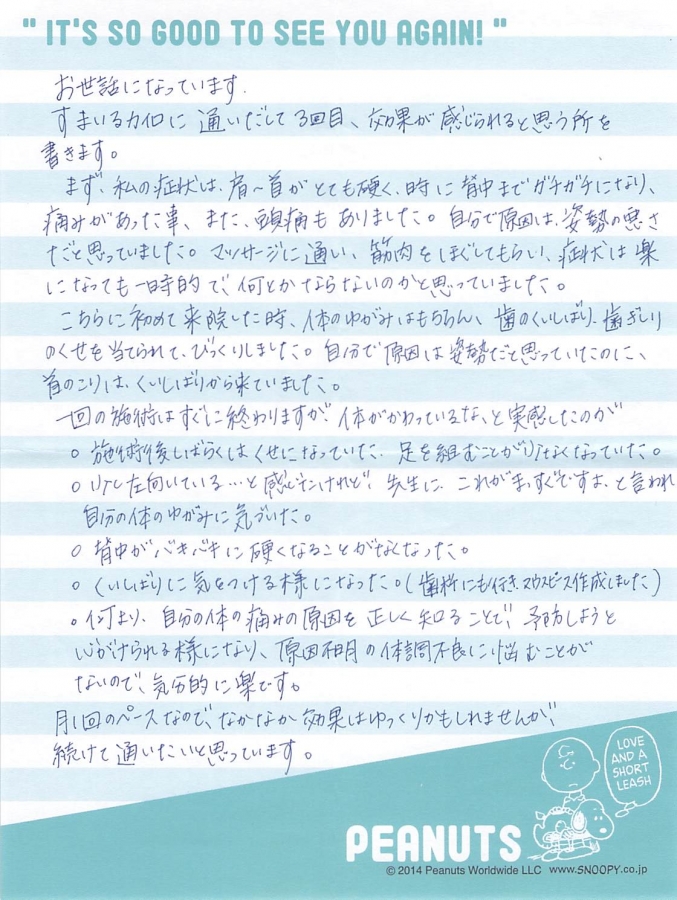 " IT'S SO GOOD TO SEE YOU AGAIN! "
お世話になっています.
すまいるカイロに 通いだして 3回目、効果が 感じられると思う所を
書きます。
まず、私の症状は、肩〜首がとても硬く、時に背中までガチガチになり、
痛みがあった事、また、頭痛もありました。自分で原因は、姿勢の悪さ
だと思っていました。マッサージに通い、筋肉をほぐしてもらい、症状は楽
になっても一時的で、何とかならないのかと思っていました。
こちらに初めて来院した時、体のゆがみはもちろん、歯のくいしばり、歯ぎしり
のくせを当てられて、びっくりしました。自分で原因は姿勢だと思っていたのに、
首のこりは、くいしばりから来ていました。
一回の施術はすぐに終わりますが、体がかわっているな、と実感したのが
○ 施術後しばらくはくせになっていた、足を組むことが少なくなっていた。
○ 少し左向いている…と感じたけれど、先生に、これがまっすぐですよ、と言われ
自分の体のゆがみに気づいた。
○ 背中がバキバキに硬くなることがなくなった。
○ くいしばりに気をつける様になった。(歯科にも行き、マウスピース作成しました)
○ 何より、自分の体の痛みの原因を正しく知ることで、予防しようと
心がけられる様になり、原因不明の体調不良に悩むことが
ないので、気分的に楽です。
月1回のペースなので、なかなか効果はゆっくりかもしれませんが、
続けて通いたいと思っています。
LOVE
AND A
SHORT
LEASH
PEANUTS
© 2014 Peanuts Worldwide LLC www.SNOOPY.co.jp